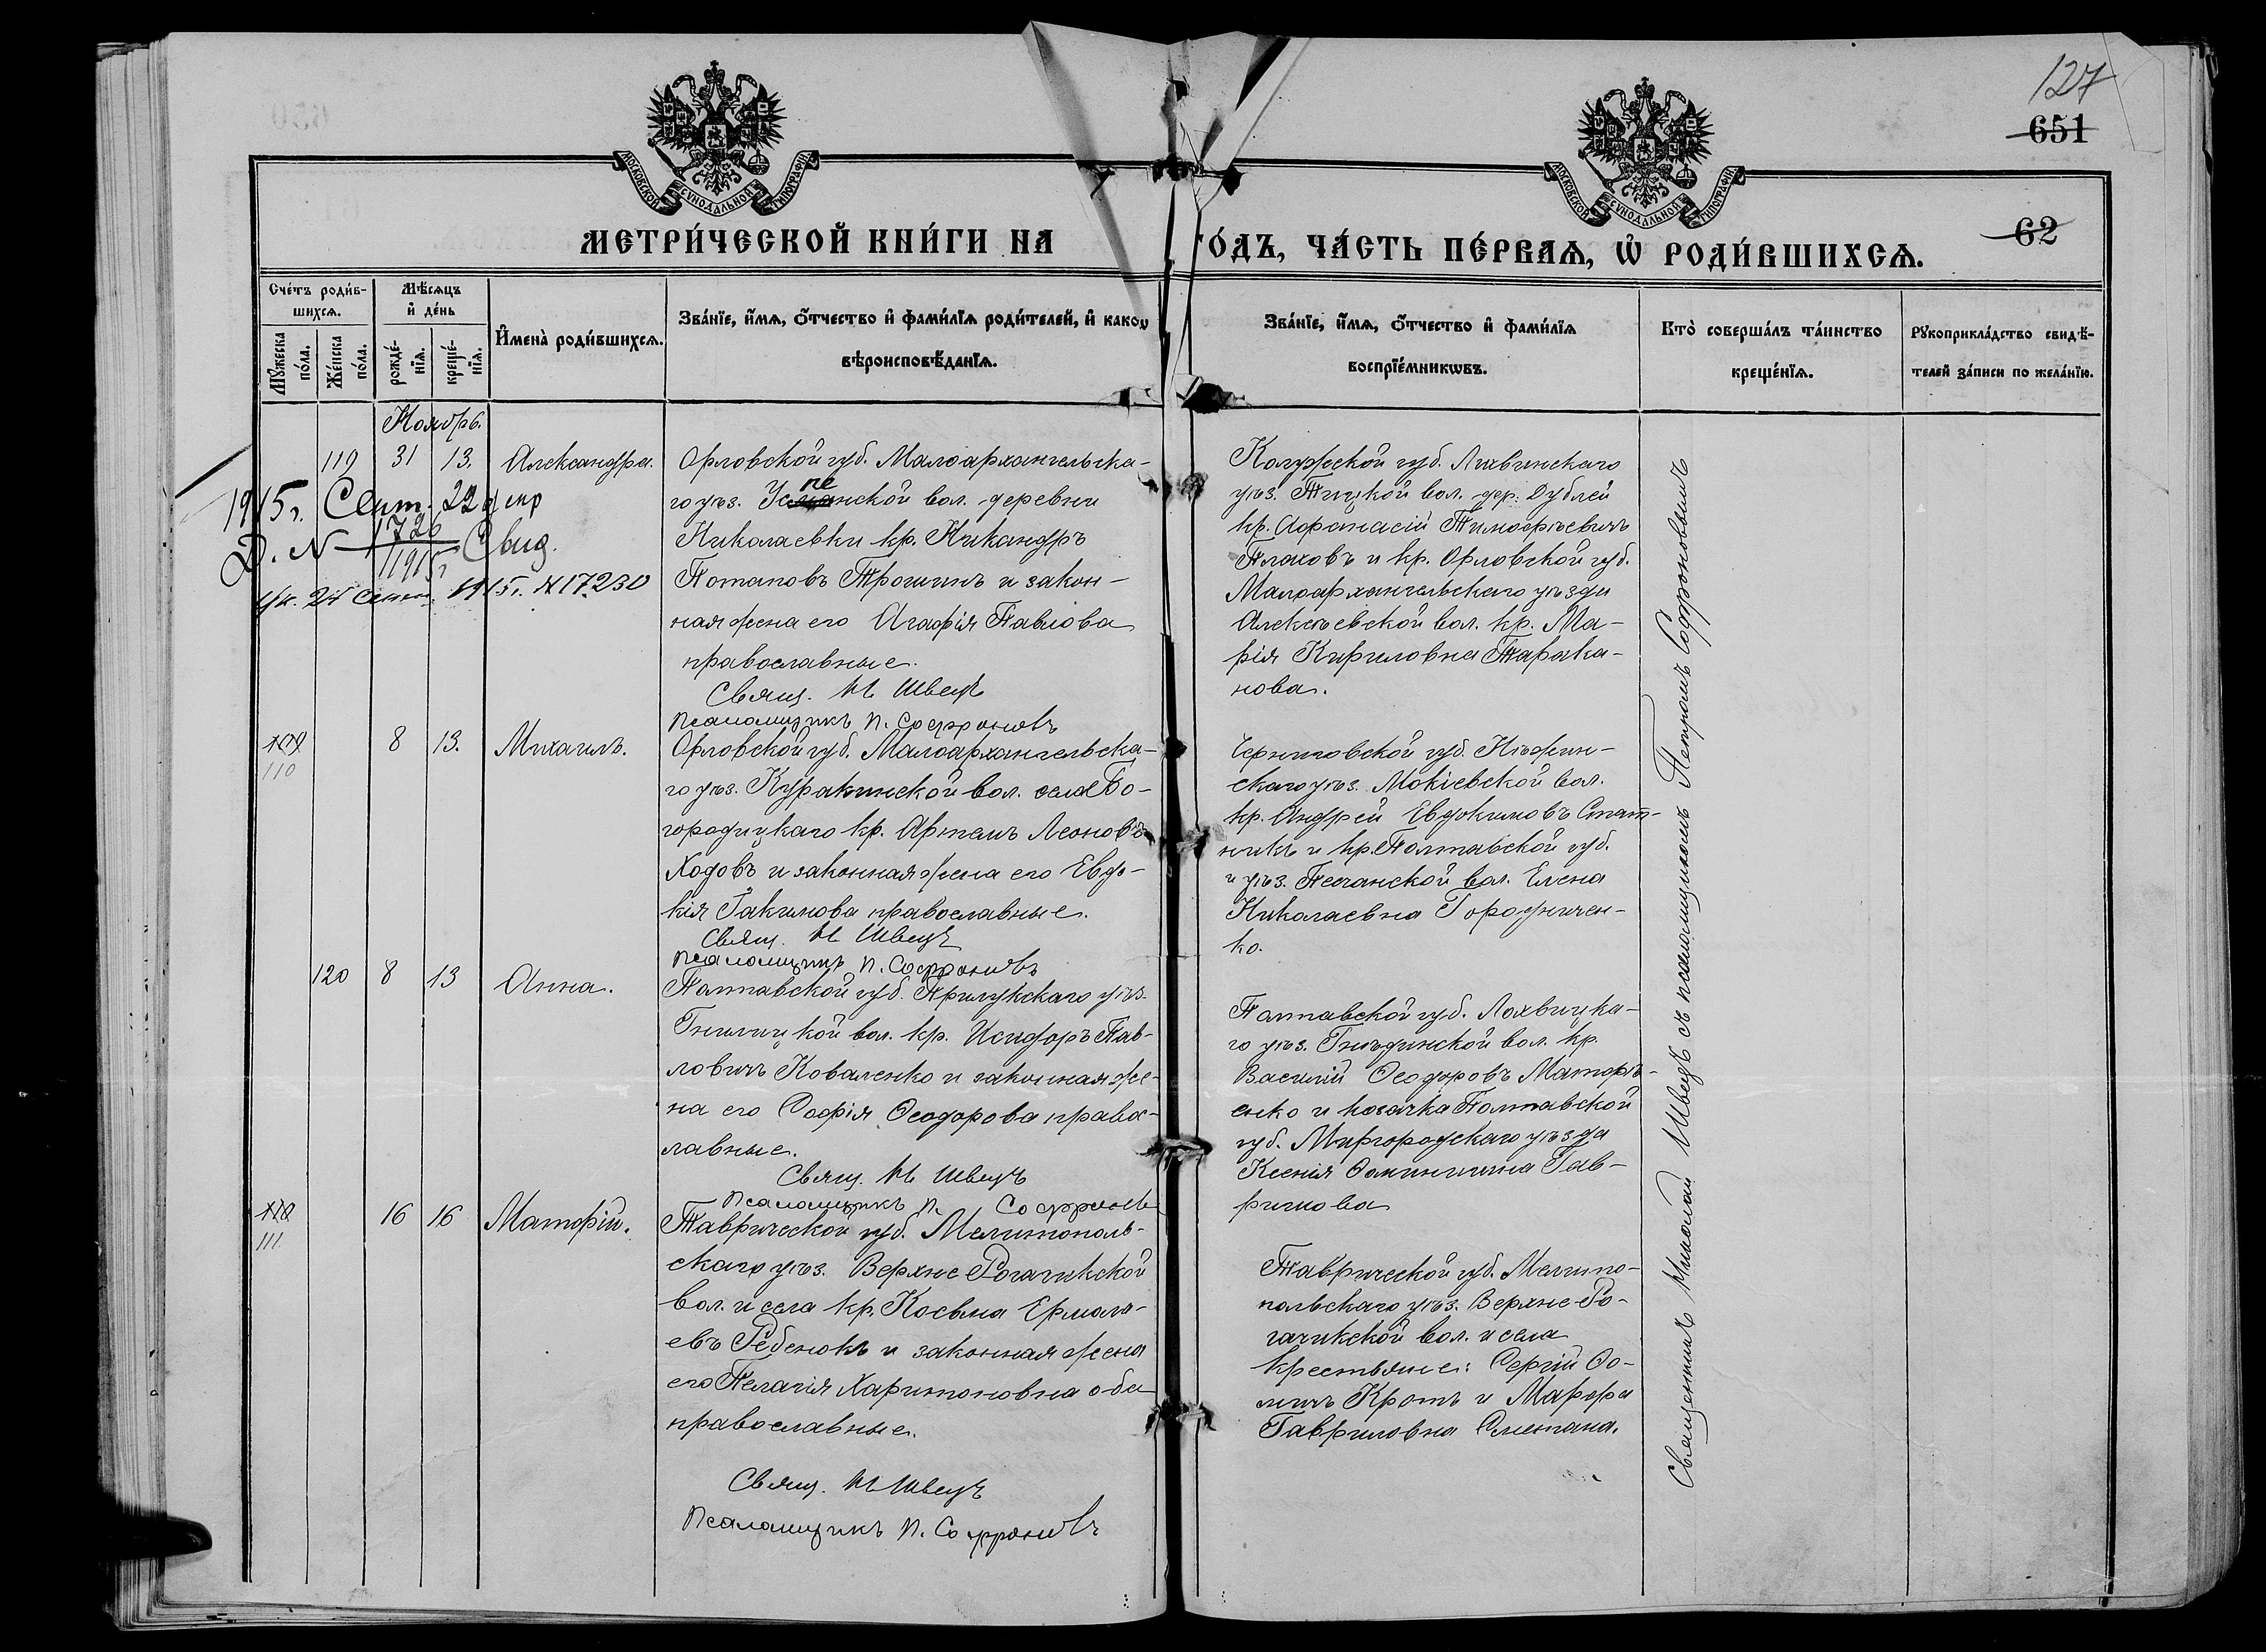 127
651
62
МОСКОВСКОЙ СУНОДАЛЬНОЙ ТИПОГРАФІИ
МОСКОВСКОЙ СУНОДАЛЬНОЙ ТИПОГРАФІИ
МЕТРИ́ЧЕСКОЙ КНИ́ГИ НА
ГО́ДЪ, ЧА́СТЬ ПЕ́РВАѦ, Ѿ РОДИ́ВШИХСѦ.
Сче́тъ роди́в-
шихсѧ.
Мꙋ́жеска по́ла.
Же́нска по́ла.
Мѣ́сѧцъ
и҆ де́нь
рожде́-
нїѧ.
креще́-
нїѧ.
И҆мена̀ роди́вшихсѧ.
Зва́нїе, и҆́мѧ, ѻ҆́тчество и҆ фами́лїѧ роди́телей, и҆ како́гѡ
вѣроисповѣ́данїѧ.
Зва́нїе, и҆́мѧ, ѻ҆́тчество и҆ фами́лїѧ
воспрїе́мникѡвъ.
Кто̀ соверша́лъ та́инство
креще́нїѧ.
Рꙋкоприкла́дство свидѣ́-
телей за́писи по жела́нїю.
Ноябрь.
119 31 13. Александра.
Орловской губ. Малоархангельска-
го уѣз. Успенской вол. деревни
Николаевки кр. Никандръ
Потаповъ Трошинъ и закон-
ная жена его Агафія Павлова
православные.
Свящ. Н Швецъ
Псаломщикъ П. Софроновъ
1915г. Сент. 22 дня
Д. N 1726
1915г Свид.
1915г. N 17230
Калужской губ. Лихвинскаго
уѣз. вол. дер. Дублей
кр. Афанасій Тимофѣевичъ
Плаховъ и кр. Орловской губ.
Малоархангельскаго уѣзда
Алексѣевской вол. кр. Ма-
рія Кириловна Тарака-
нова.
109
110
8 13. Михаилъ.
Орловской губ. Малоархангельска-
го уѣз. Куракинской вол. села Бо-
городицкаго кр. Артемъ Леоновъ
Ходовъ и законная жена его Евдо-
кія Іакимова православные.
Свящ. Н Швецъ
Псаломщикъ П. Софроновъ
Черниговской губ. Нѣжин-
скаго уѣз. Мокіевской вол.
кр. Андрей Евдокимовъ Стат-
никъ и кр. Полтавской губ.
и уѣз. Песчанской вол. Елена
Николаевна Городничен-
ко.
120 8 13 Анна.
Полтавской губ. Прилукскаго уѣз.
Гнилицкой вол. кр. Исидоръ Пав-
ловичъ Коваленко и законная же-
на его Софія Ѳеодорова правос-
лавные.
Свящ. Н Швецъ
Псаломщикъ П. Софроновъ
Полтавской губ. Лохвицка-
го уѣз. Гнѣдинской вол. кр.
Василій Ѳеодоровъ Матфѣ-
енко и козачка Полтавской
губ. Миргородскаго уѣзда
Ксенія Гав-
рилова
110
111
16 16 Матфій.
Таврической губ. Мелитополь-
скаго уѣз. Верхне Рогачикской
вол. и села кр. Косьма Ермола-
евъ Ребенокъ и законная жена
его Пелагія Харитоновна оба
православные.
Свящ. Н Швецъ
Псаломщикъ П. Софроновъ
Таврической губ. Мелито-
польскаго уѣз. Верхне-Ро-
гачикской вол. и села
крестьяне: Сергій Ѳо-
мичъ Кротъ и Марфа
Гавриловна Сметана.
Священникъ Николай Швецъ съ псаломщикомъ Петромъ Софроновымъ